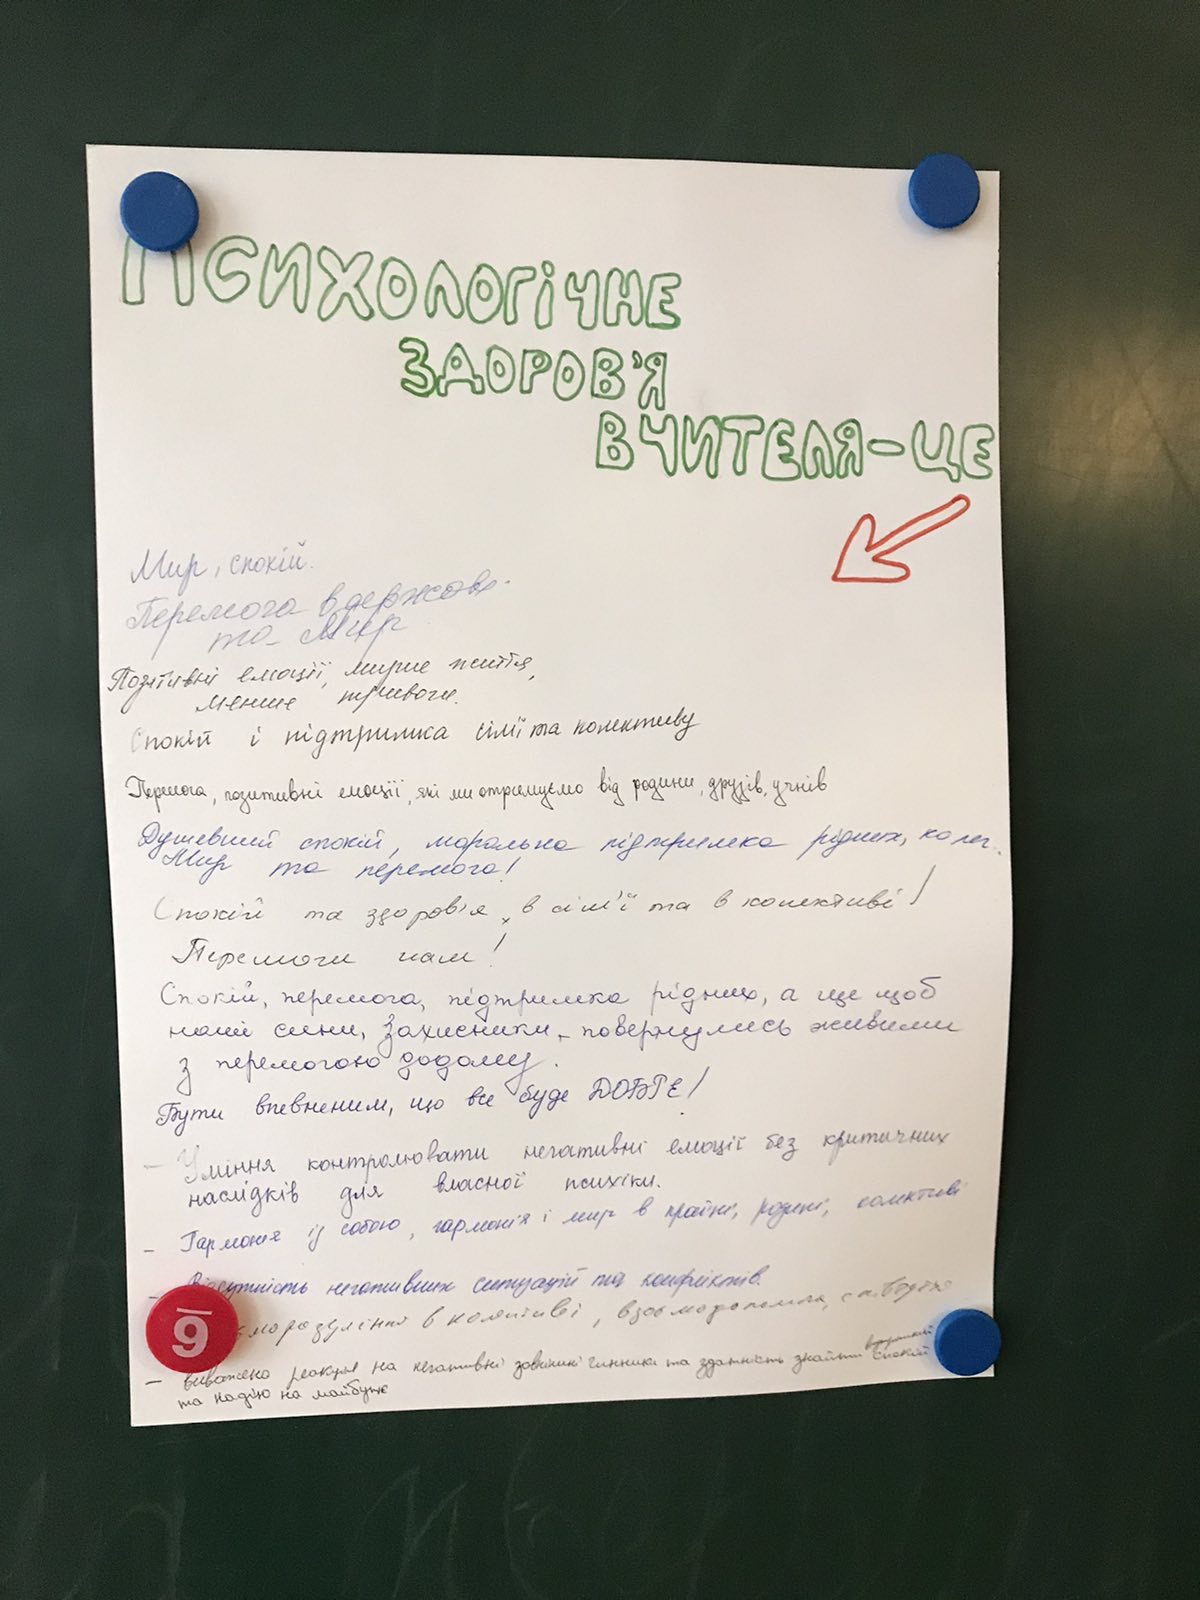 ПСИХОЛОГІЧНЕ
ЗДОРОВ'Я
ВЧИТЕЛЯ-ЦЕ
Мир, спокій.
Перемога в державі
та Мир
Позитивні емоції, мирне життя,
менше тривоги.
Спокій і підтримка сім'ї та колективу
Перемога, позитивні емоції, які ми отримуємо від родини, друзів, учнів
Душевний спокій, моральна підтримка рідних, колег.
Мир та перемога!
Спокій та здоров'я, в сім'ї та в колективі!
Перемоги нам!
Спокій, перемога, підтримка рідних, а ще щоб
наші сини, захисники, повернулись живими
з перемогою додому.
Бути впевненим, що все буде ДОБРЕ!
- Уміння контролювати негативні емоції без критичних
наслідків для власної психіки.
- Гармонія із собою, гармонія і мир в країні, родині, колективі
- Відсутність негативних ситуацій та конфліктів.
в колективі, взаємодопомога,
- виважена реакція на негативні зовнішні чинники та здатність знайти спокій
та надію на майбутнє
9